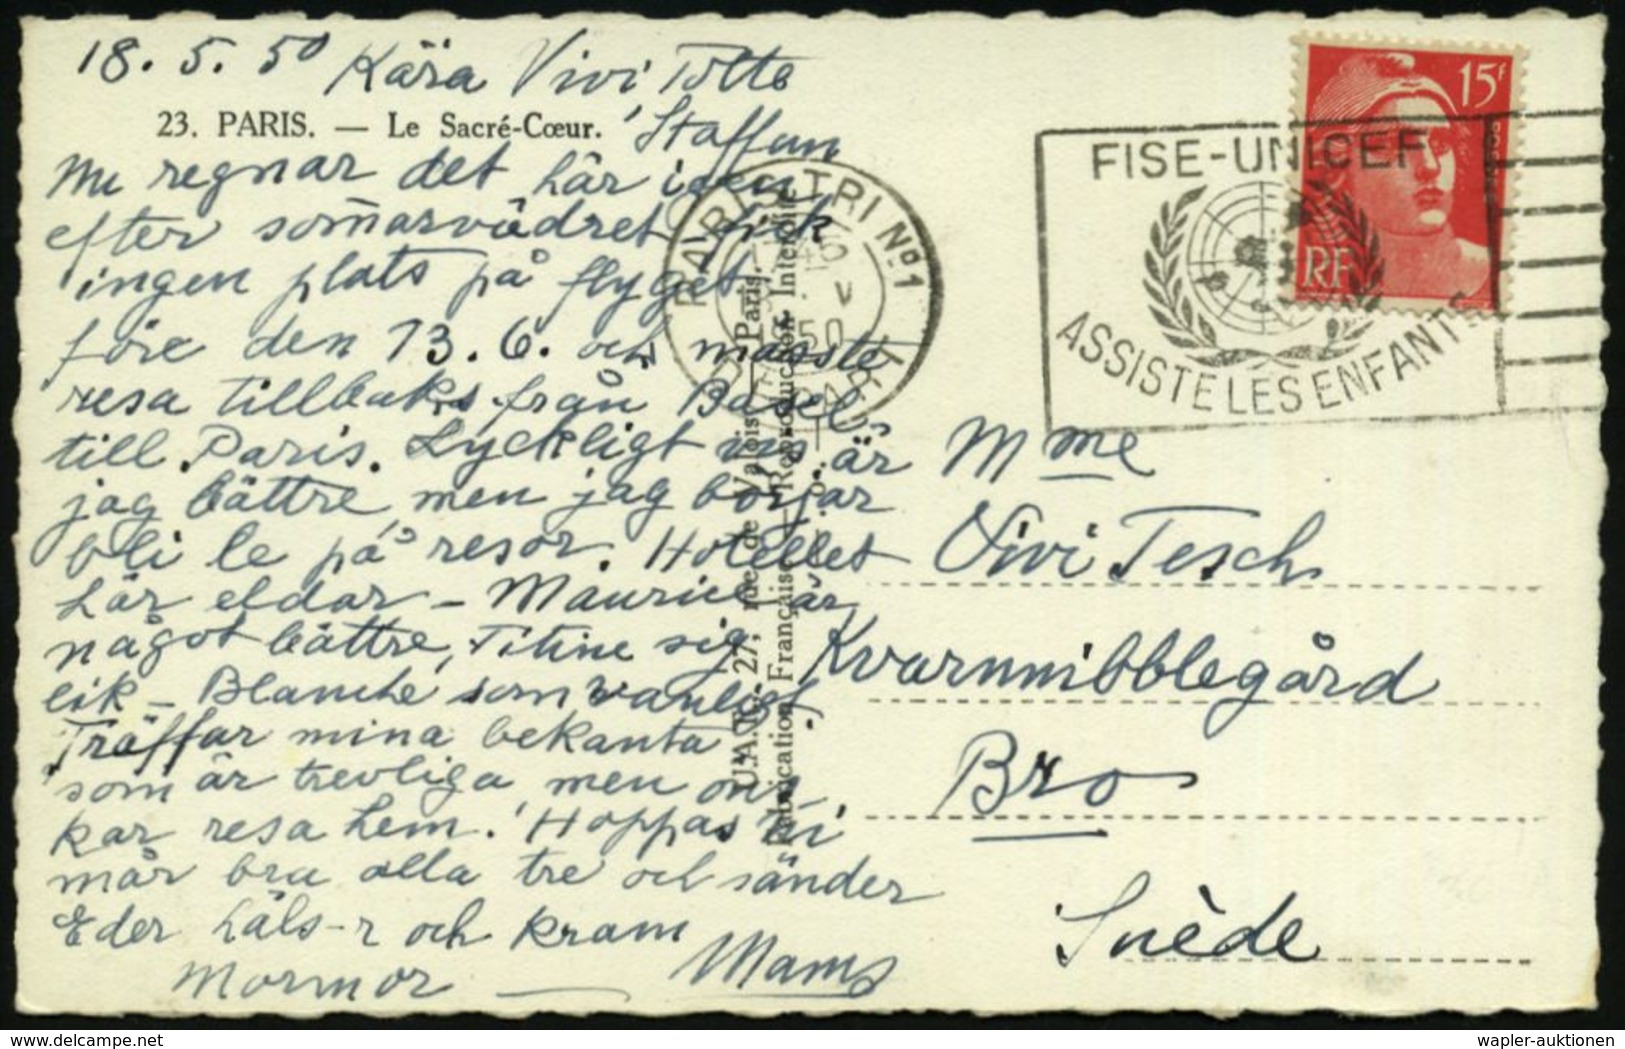 18. 5. 50 Kära Vivi Totte
23. PARIS. — Le Sacré-Cœur.
Staffan
Nu regnar det här igen
efter som̄arvädret fick
ingen plats på flyget
före den 13. 6. och måste
resa tillbaks från Basel
till Paris. Lyckligtvis är
jag bättre men jag börjar
bli le på resor. Hotellet
här eldar – Maurice är
något bättre, Titine sig
lik – Blanche som vanligt.
Träffar mina bekanta
som är trevliga men
kar resa hem. Hoppas Ni
mår bra alla tre och sänder
Eder häls-r och kram
Mormor — Mams
U.A.R. 27, rue de Valois Paris.
Fabrication Française — Reproduction Interdite
PARIS TRI Nº1
15F
RF
FISE-UNICEF
ASSISTE LES ENFANTS
Mme
Vivi Tesch
Kvarnnibblegård
Bro
Suède
wapler-auktionen